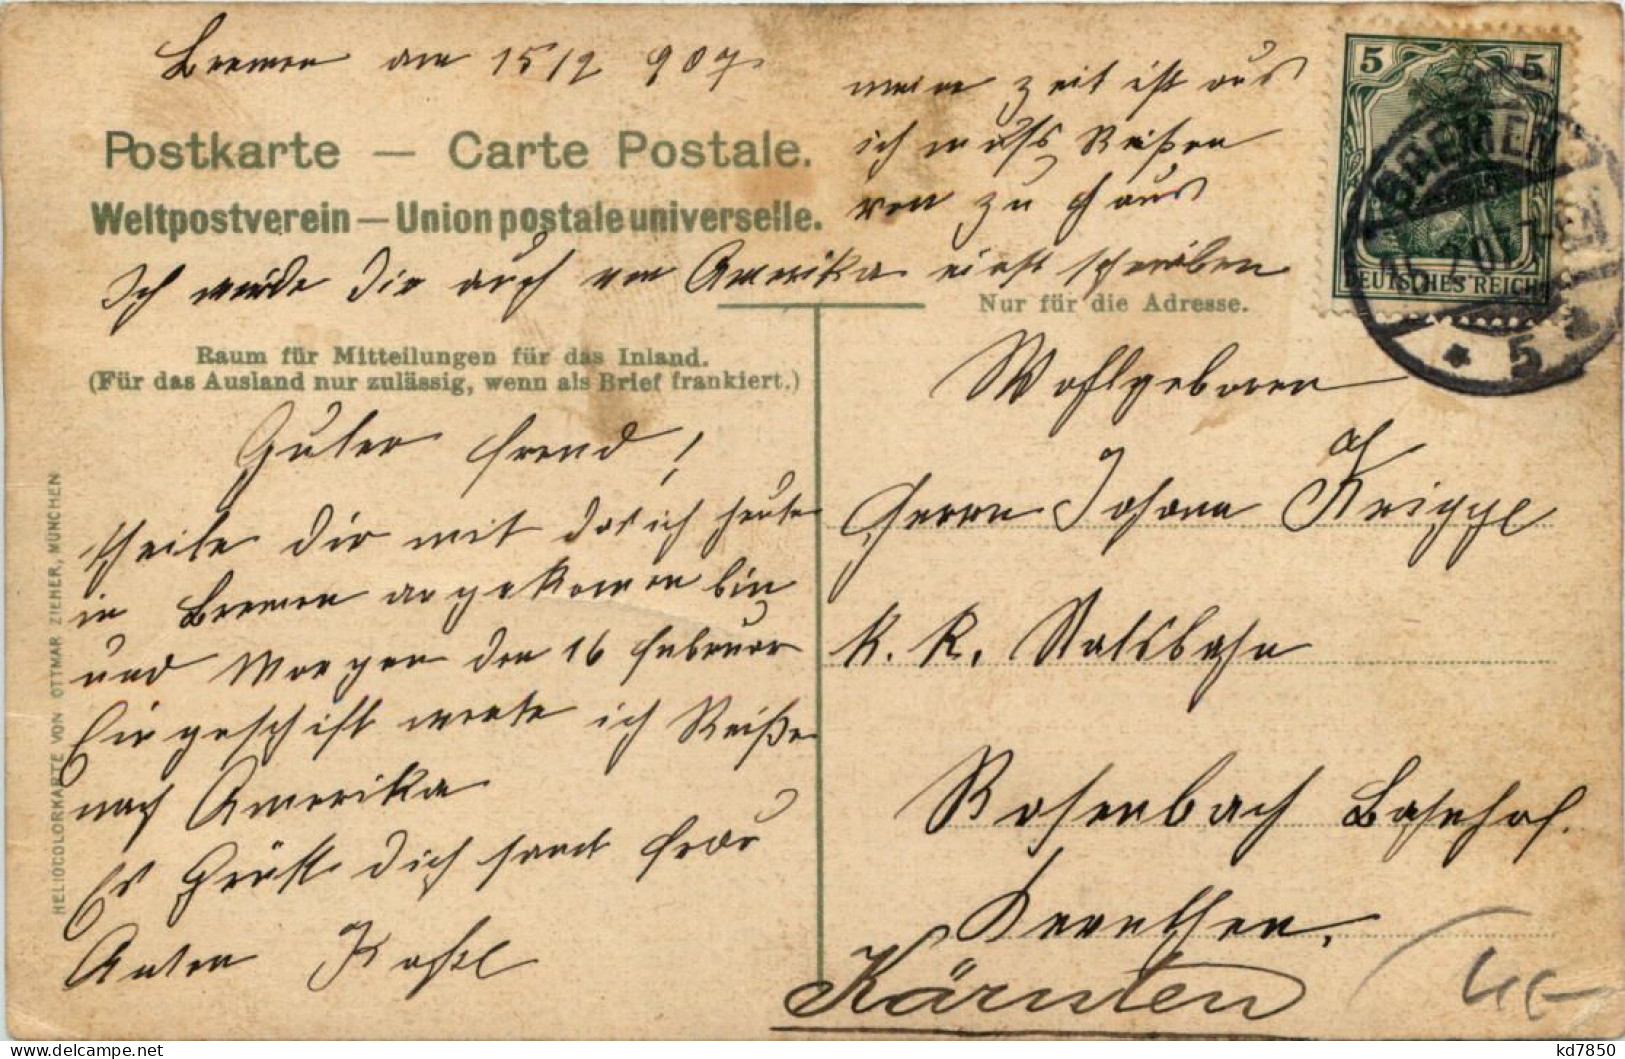 Bremen am 15/2 907
meine zeit ist aus
ich muss Reißen
von zu Haus
Postkarte — Carte Postale.
Weltpostverein — Union postale universelle.
Ich würde Dir auch von Amerika einst schreiben
Nur für die Adresse.
Raum für Mitteilungen für das Inland.
(Für das Ausland nur zulässig, wenn als Brief frankiert.)
Guter freund!
theile dir mit das ich heute
in Bremen angekomen bin
und Morgen den 16 februar
Eingeschift werte ich Reiße
nach Amerika
Es Grüßt dich samt frau
Anton
HELIOCOLORKARTE VON OTTMAR ZIEHER, MÜNCHEN
5 5
DEUTSCHES REICH
BREMEN
5
Wohlgeboren
Herrn Johann
K. K. Statsbahn
Rosenbach Bahnhof.
Kärnten
kd7850